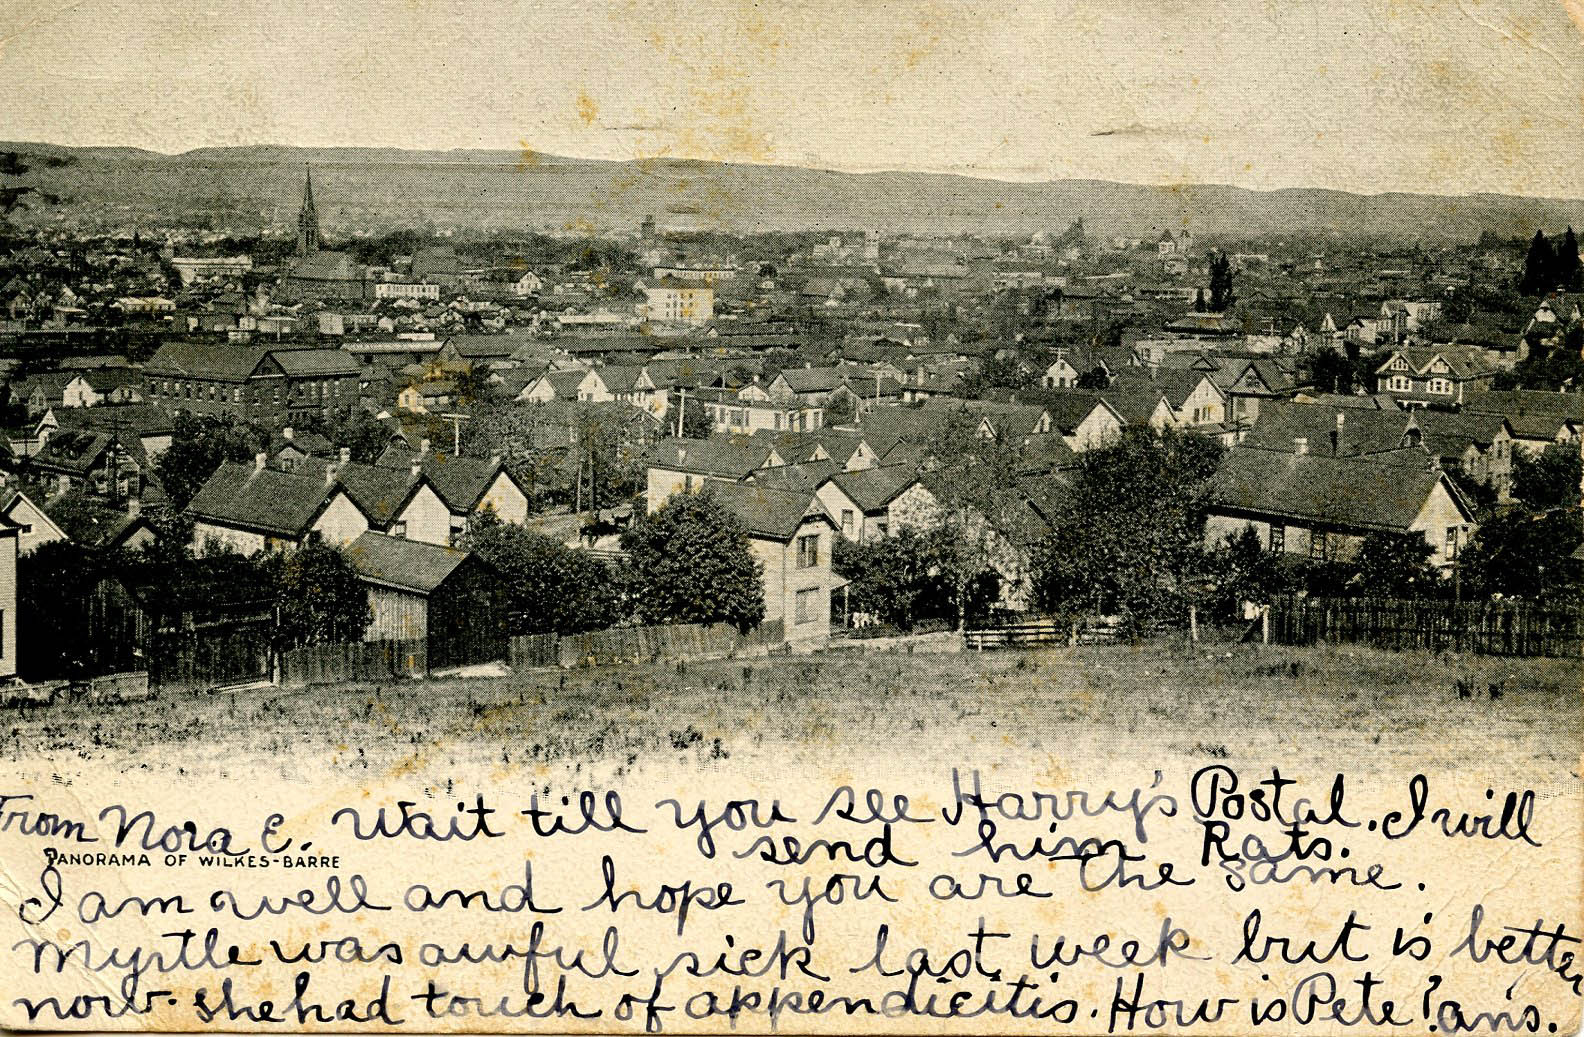 From Nora E. Wait till you see Harry's Postal. I will
send him Rats.
PANORAMA OF WILKES-BARRE
I am well and hope you are the same.
Myrtle was awful sick last week but is better
now. she had touch of appendicitis. How is Pete? ans.